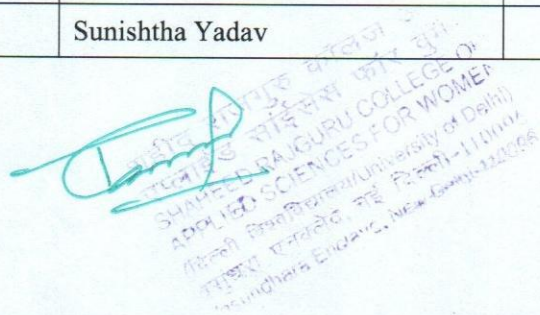 Sunishtha Yadav
शहीद राजगुरु कॉलेज ऑफ
एप्लाईड साईंसेस फॉर वुमेन
SHAHEED RAJGURU COLLEGE OF
APPLIED SCIENCES FOR WOMEN
(दिल्ली विश्वविद्यालय/University of Delhi)
वसुन्धरा एनक्लेव, नई दिल्ली-110096
Vasundhara Enclave, New Delhi-110096